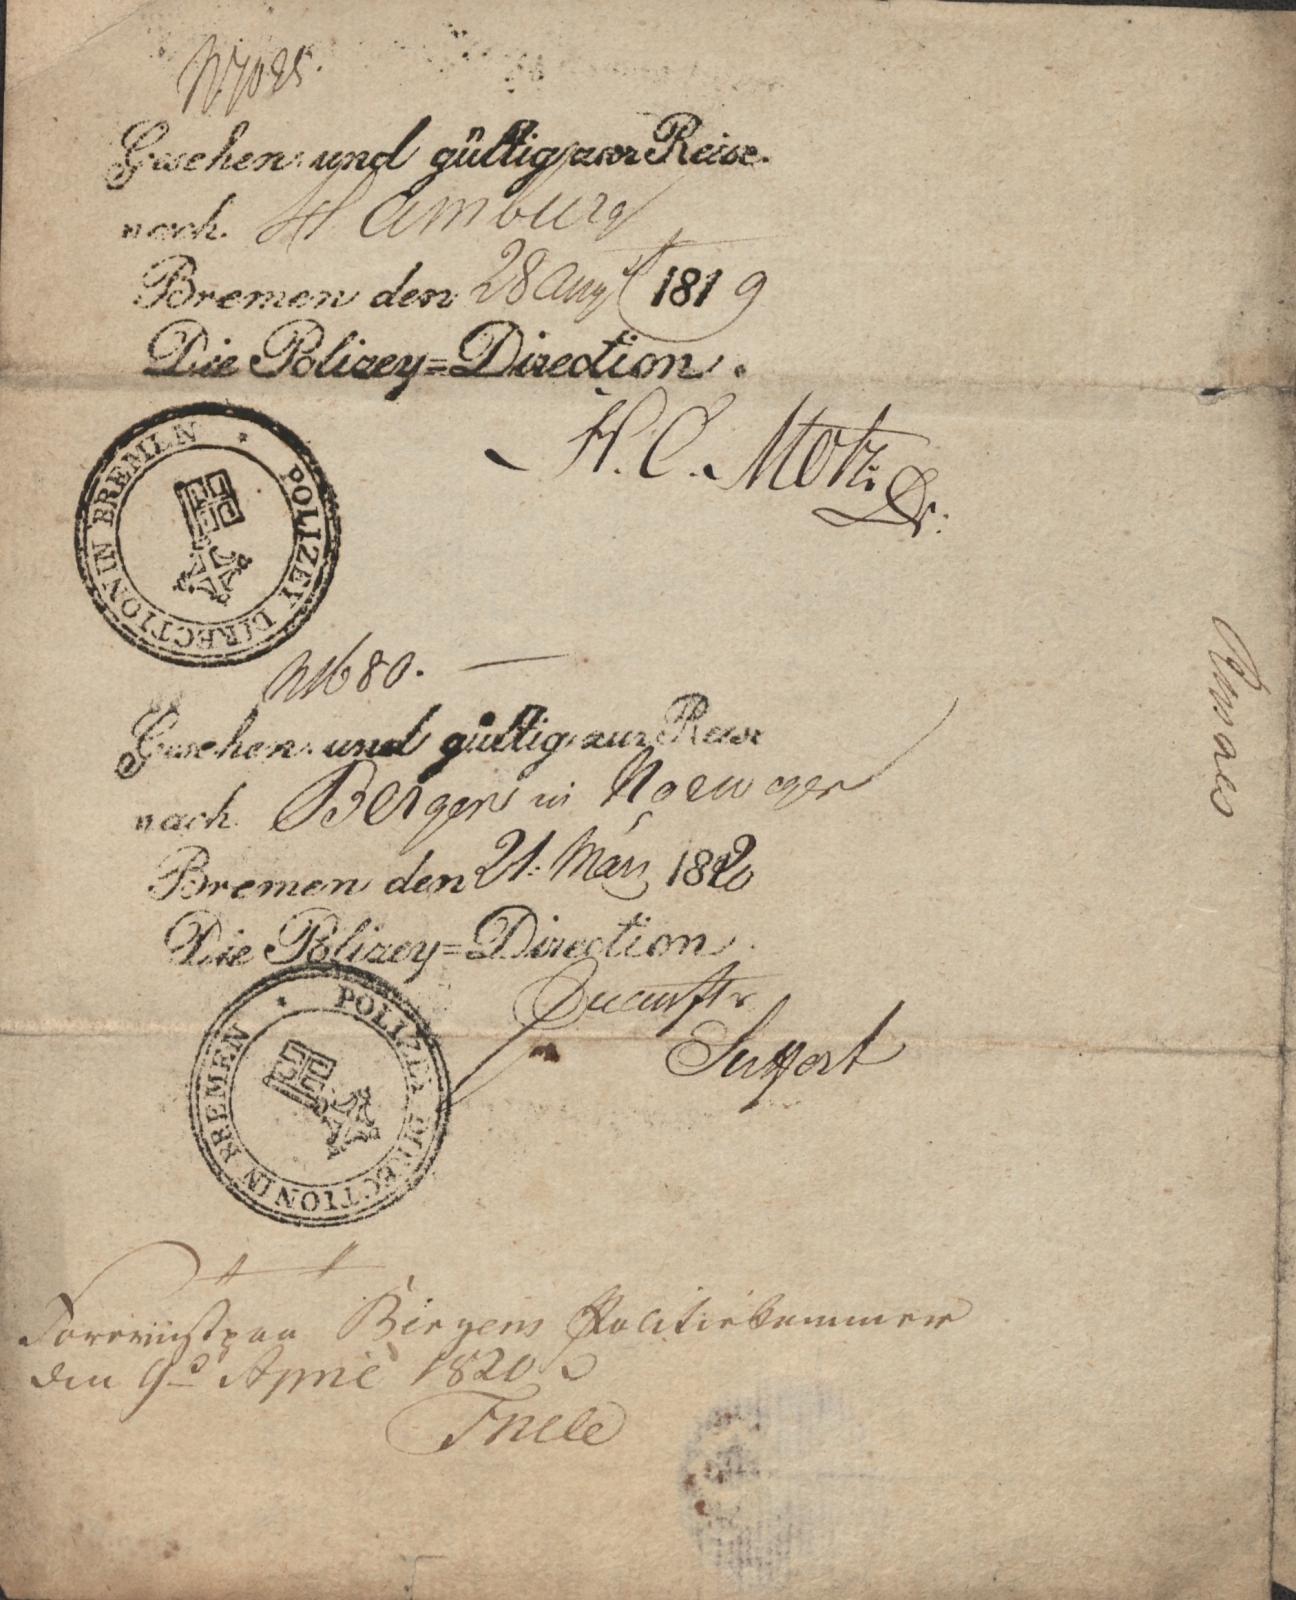 N 7025.
Gesehen und gültig zur Reise
nach Hamburg
Bremen den 28 Augst 1819
Die Polizey=Direction.
H. C. Motz Dr:
POLIZEY DIRECTION IN BREMEN *
N 1680.
Gesehen und gültig zur Reise
nach Bergen in Norwegen
Bremen den 21. März 1820
Die Polizey=Direction.
POLIZEY DIRECTION IN BREMEN *
Foreviist paa Bergens Politiekammer
den 9de April 1820